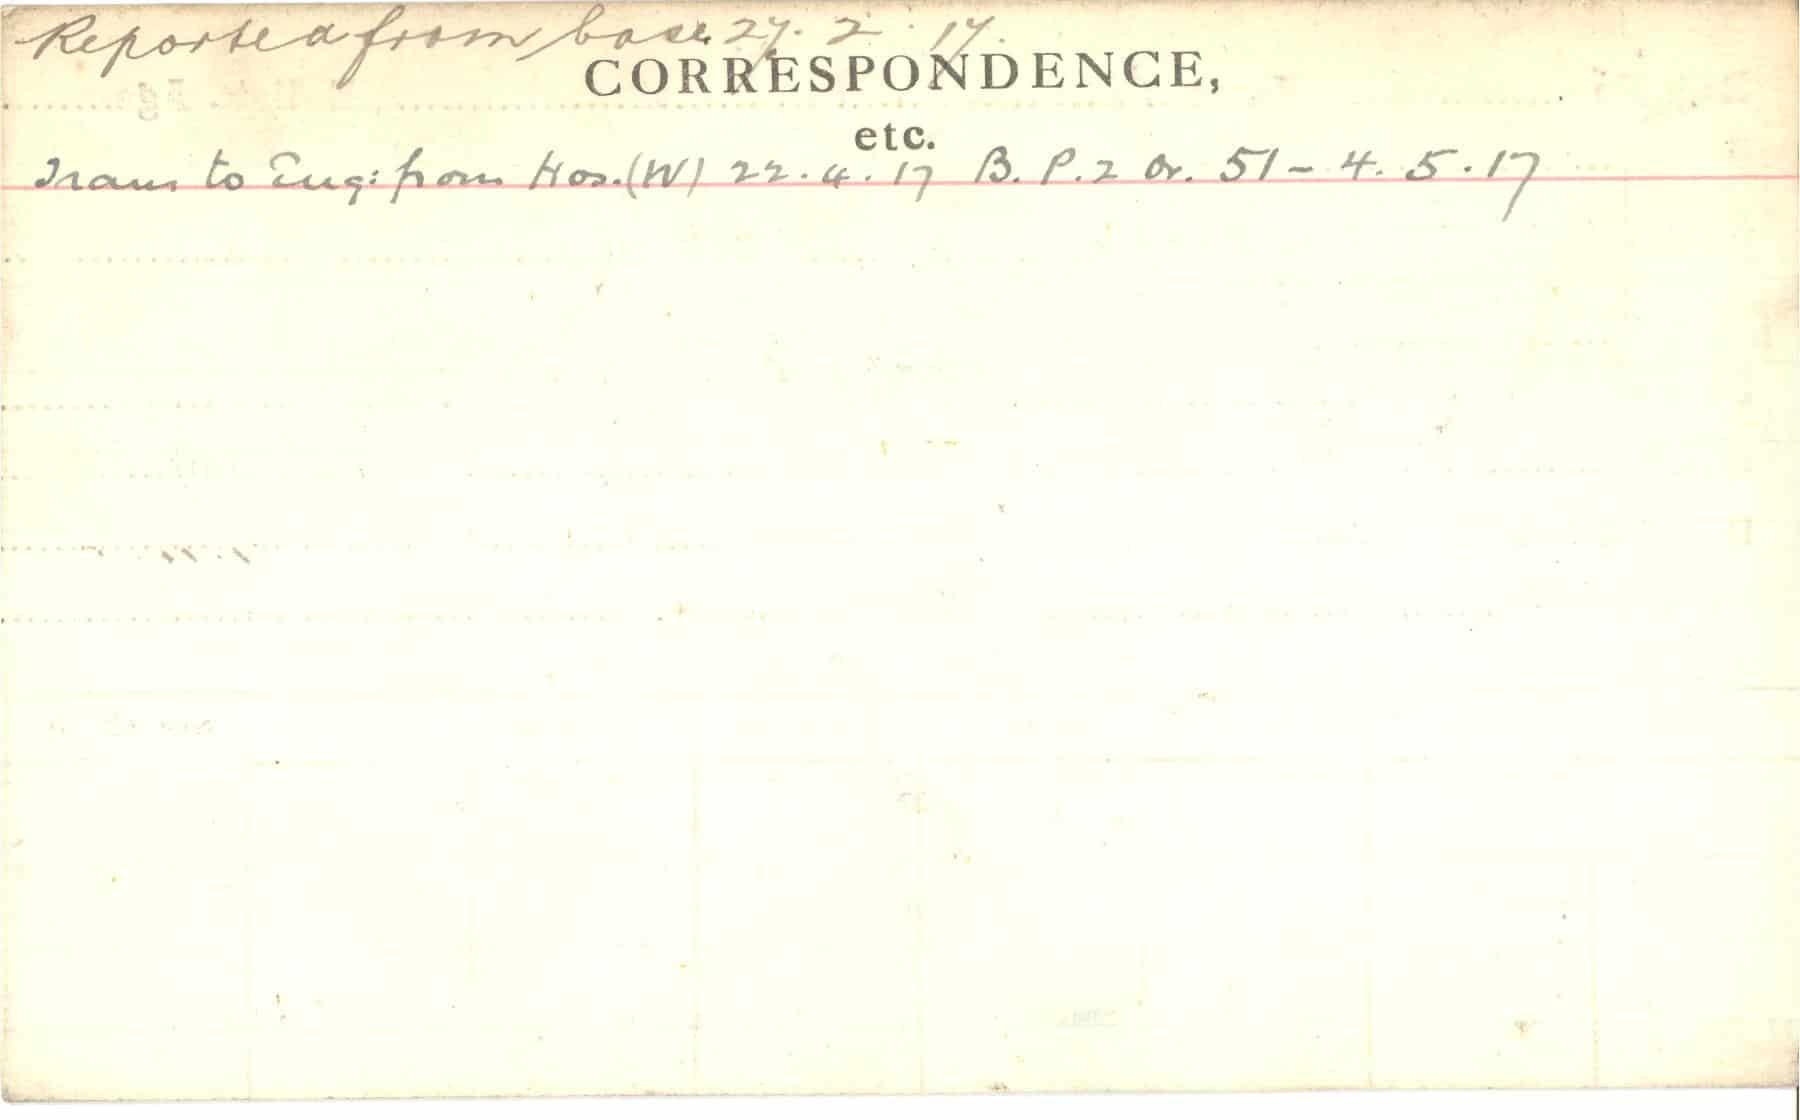 Reported from base 27.2.17.
CORRESPONDENCE,
etc.
Trans to Eng: from Hos.(W) 22.4.17 B.P.2 Or. 51-4.5.17